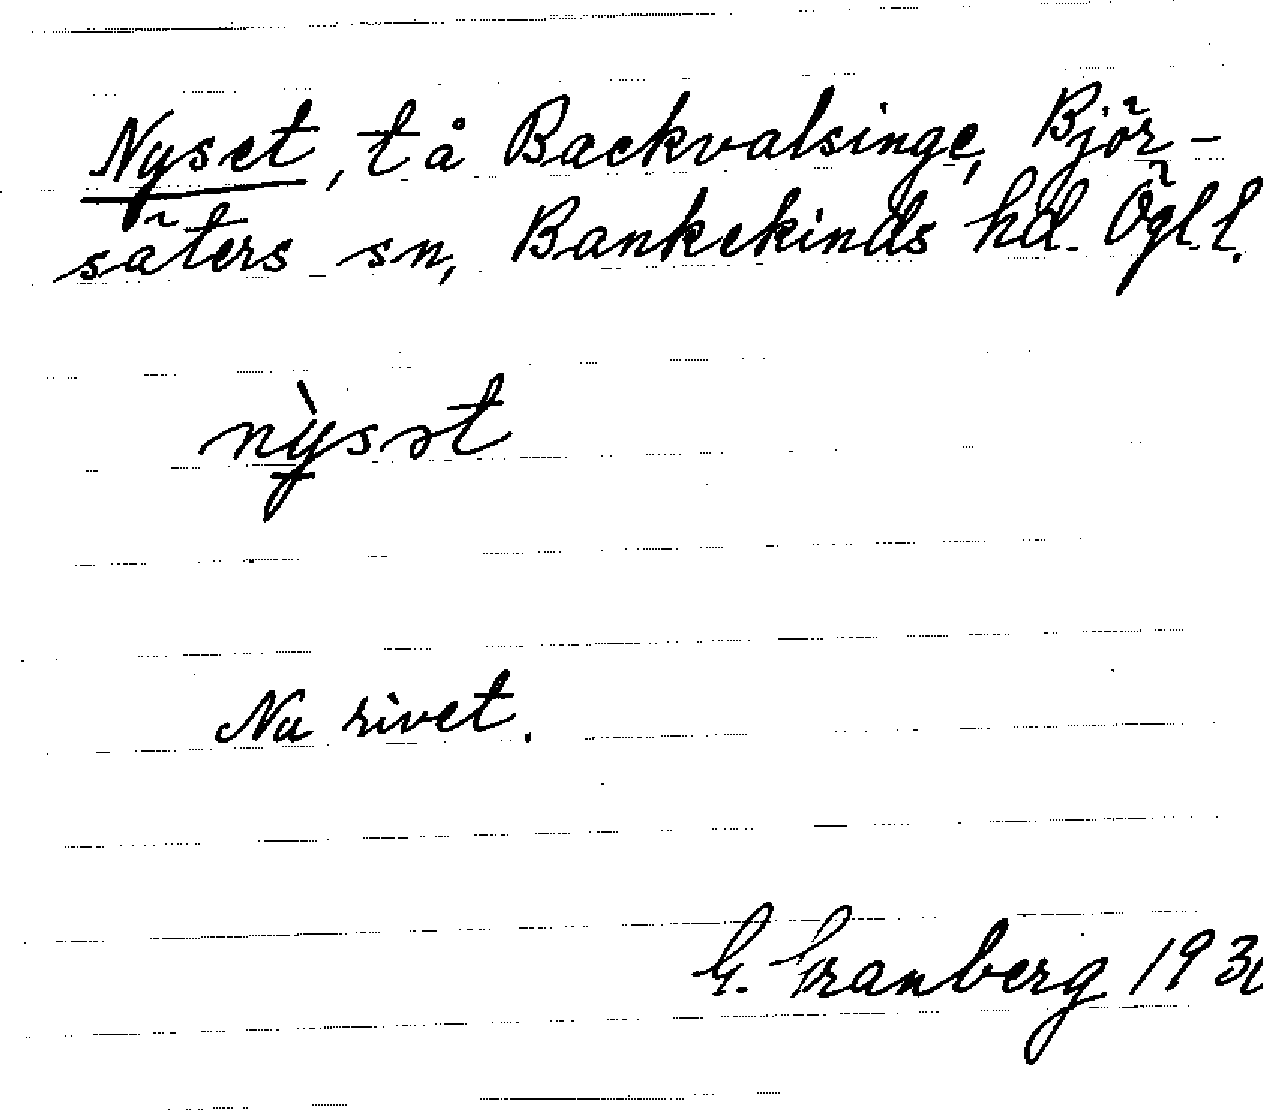 Nyset, t å Backvalsinge, Björ-
säters sn, Bankekinds hd. Ögl l.
nỳsət
Nu rivet.
G. Granberg 193